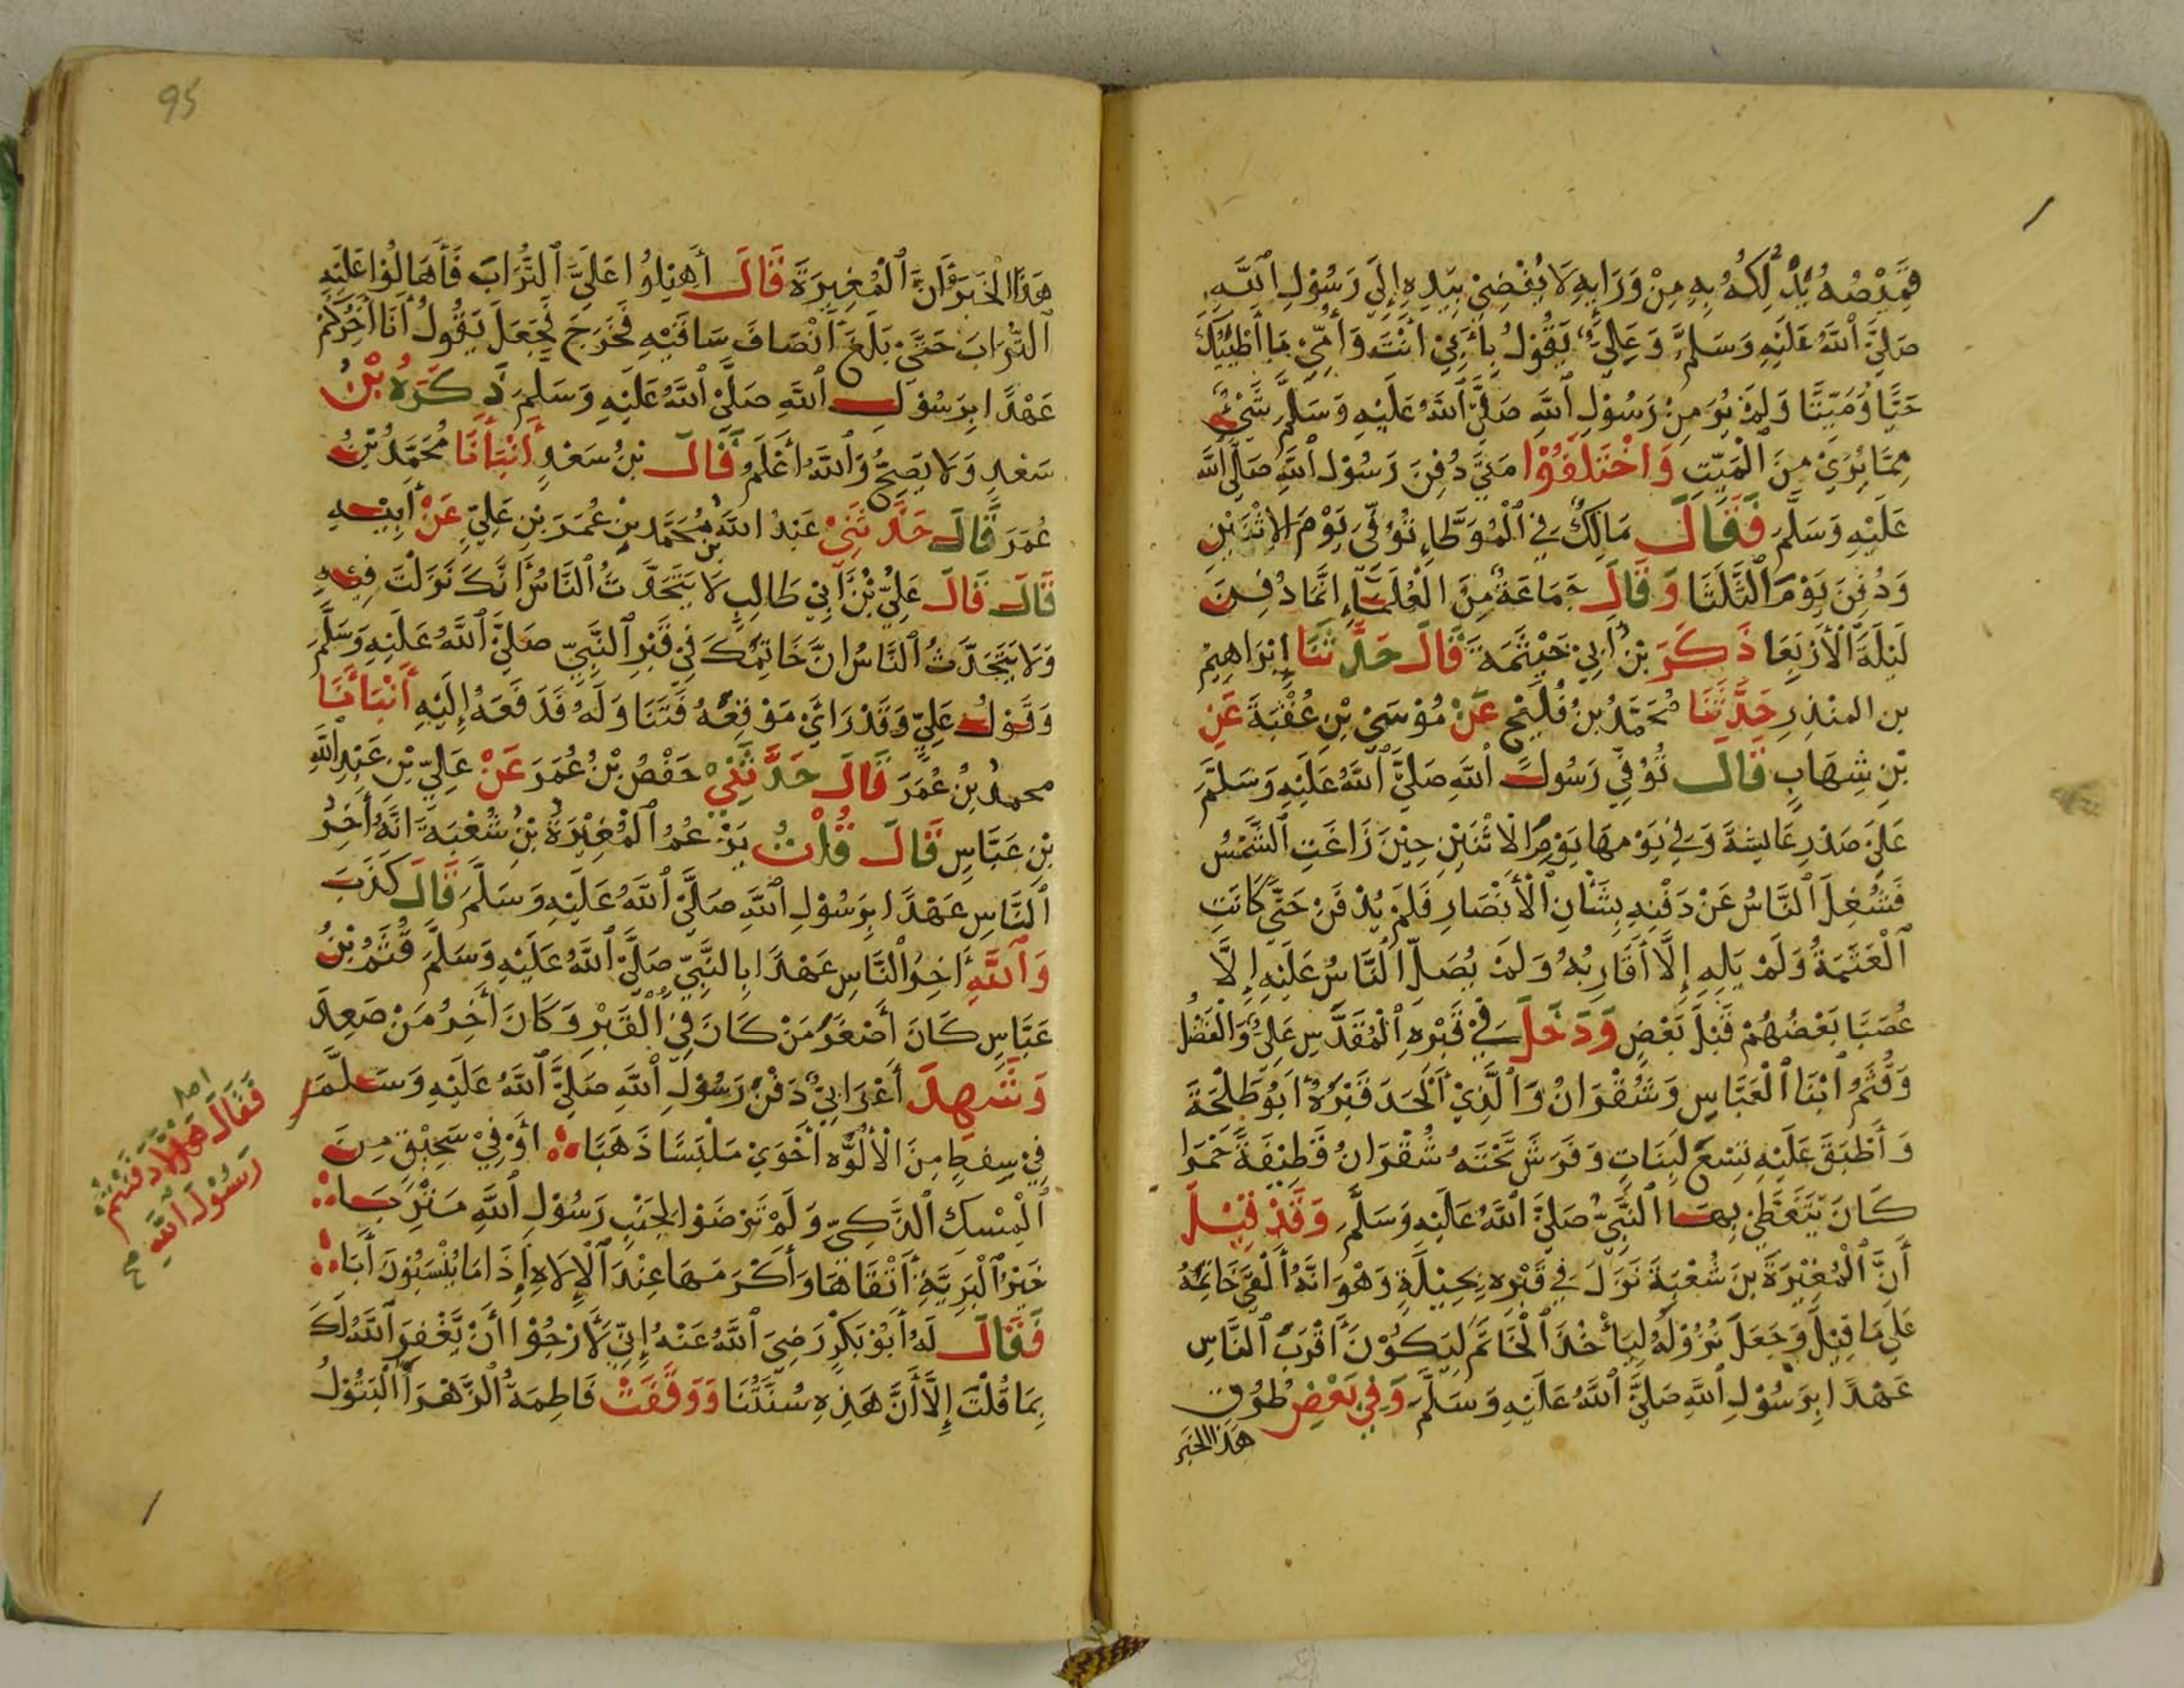 قميصه يدلكه به من ورايه لا يفضي بيده إلي رسول الله
صلي الله عليه وسلم وعلي يقول بأبي أنت وأمي ما أطيبك
حيا وميتا ولم ير من رسول الله صلي الله عليه وسلم شيء
مما يري من الميت واختلفوا متي دفن رسول الله صلي الله
عليه وسلم فقال مالك في الموطإ توفي يوم الاثنين
ودفن يوم الثلثا وقال جماعة من العلماء إنما دفن
ليلة الأربعا ذكر بن أبي خيثمة قال حدثنا إبراهيم
بن المنذر حدثنا محمد بن فليح عن موسي بن عقبة عن
بن شهاب قال توفي رسول الله صلي الله عليه وسلم
علي صدر عايشة وفي يومها يوم الاثنين حين زاغت الشمس
فشغل الناس عن دفنه بشأن الأنصار فلم يدفن حتي كانت
العتمة ولم يله إلا أقاربه ولم يصل الناس عليه إلا
عصبا بعضهم قبل بعض ودخل في قبره المقدس علي والفضل
وقثم ابنا العباس وشقران والذي ألحد قبره أبو طلحة
وأطبق عليه تسع لبنات وفرش تحته شقران قطيفة حمرا
كان يتغطي بها النبي صلي الله عليه وسلم وقد قيل
أن المغيرة بن شعبة نزل في قبره بحيلة وهو انه ألقي خاتمه
علي ما قيل وجعل نزوله ليأخذ الخاتم ليكون أقرب الناس
عهدا برسول الله صلي الله عليه وسلم وفي بعض طرق
هذا الخبر
95
هذا الخبر وأن المغيرة قال أهيلوا علي التراب فأهالوا عليه
التراب حتي بلغ أنصاف ساقيه فخرج فجعل يقول أنا أخركم
عهدا برسول الله صلي الله عليه وسلم ذكره بن
سعد ولا يصح والله أعلم قال بن سعد أنبأنا محمد بن
عمر قال حدثني عبد الله بن محمد بن عمر بن علي عن أبيه
قال قال علي بن أبي طالب لا يتحدث الناس انك نزلت فيه
ولا يتحدث الناس ان خاتمك في قبر النبي صلي الله عليه وسلم
ونزل علي وقد رأي موقعه فتناوله فدفعه إليه أنبأنا
محمد بن عمر قال حدثني حفص بن عمر عن علي بن عبد الله
بن عباس قال قلت يزعم المغيرة بن شعبة انه أخر
الناس عهدا برسول الله صلي الله عليه وسلم قال كذب
والله أخر الناس عهدا بالنبي صلي الله عليه وسلم قثم بن
عباس كان أصغر من كان في القبر وكان أخر من صعد
وشهد أعرابي دفن رسول الله صلي الله عليه وسلم
في سفط من الألوه أخوي ملبسا ذهبا أو في سحيق من
المسك الذكي ولم ترضوا لجنب رسول الله متربا
خير البرية أتقاها وأكرمها عند الإلاه إذا ما ينسبون أبا
فقال له أبو بكر رضي الله عنه إني لأرجوا أن يغفر الله لك
بما قلت إلا أن هذه سنتنا ووقفت فاطمة الزهرا البتول
فقال هلا دفنتم
رسول الله
صح